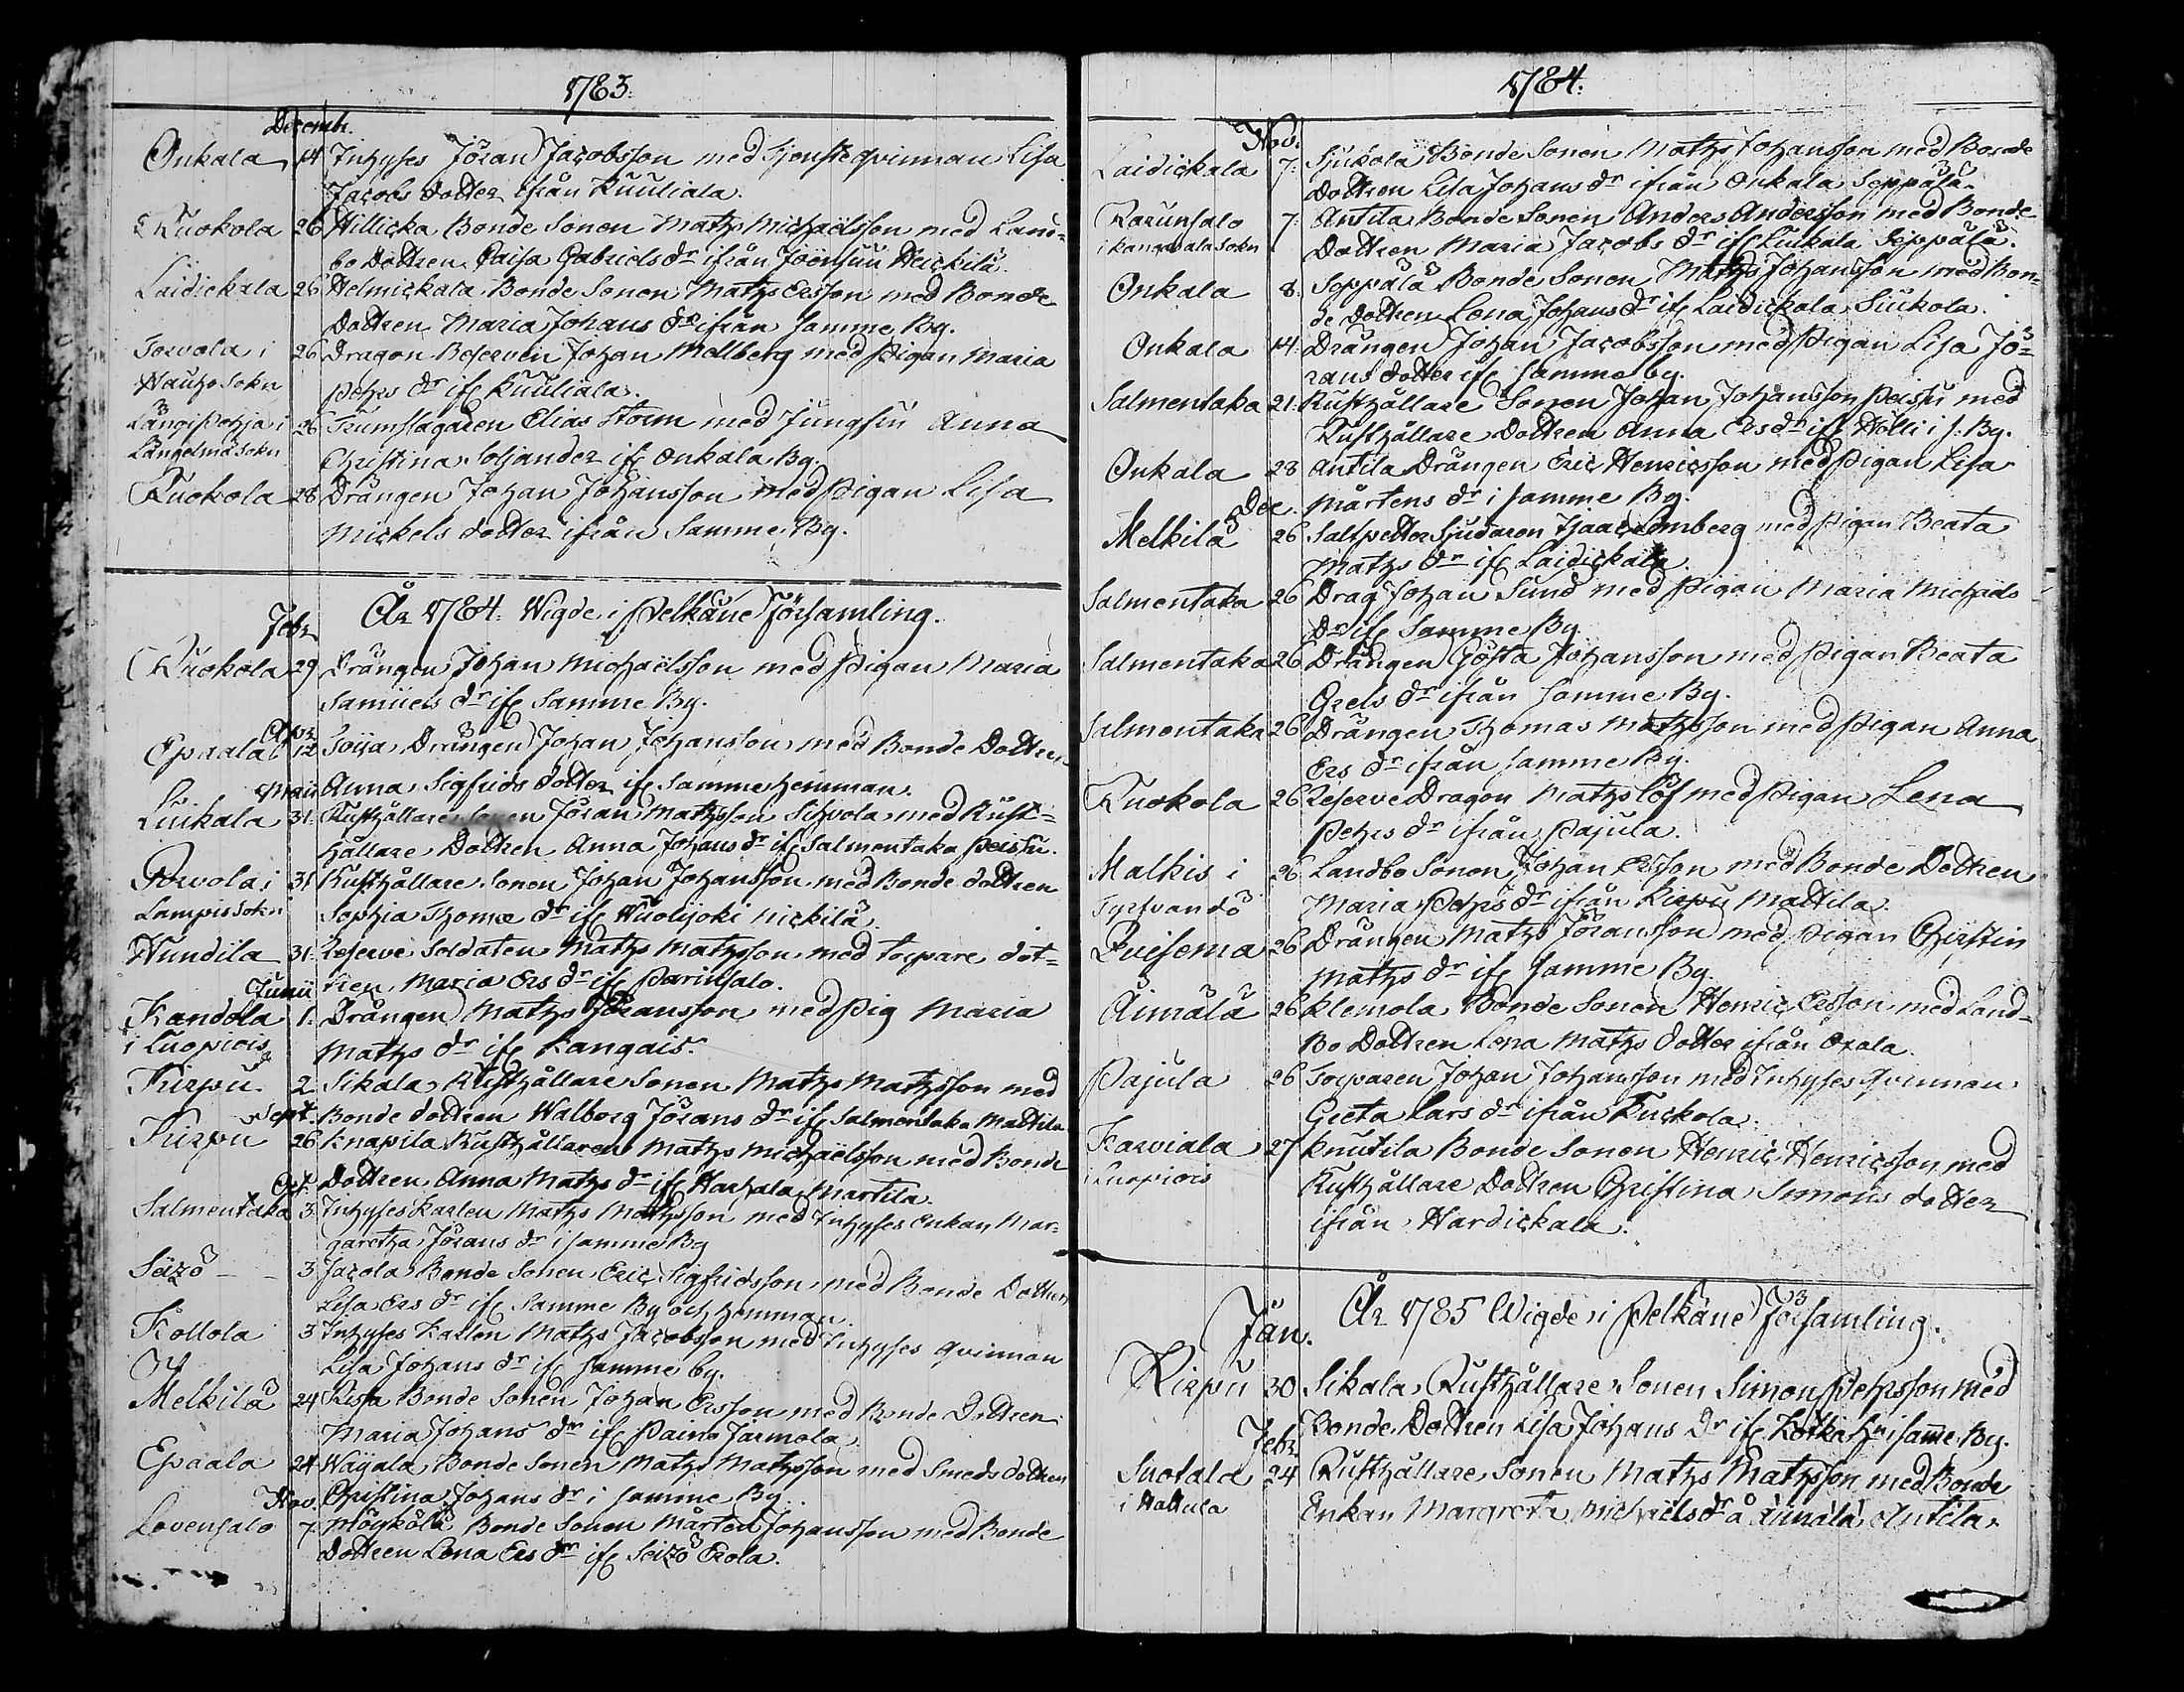 1783.
Decembr.
Onkala 14 Inhyses Jöran Jacobsson med Tjenste qvinnan Lisa
Jacobs dotter ifrån Kuuliala.
Kuokola 26 Hillicka Bonde Sonen Mathz Michaëlsson med Land=
bo Dottren Caisa Gabriels dr ifrån Joënsuu Heickilä.
Laidickala 26 Helmickala Bonde Sonen Mathz Ersson med Bonde
Dottren Maria Johans dr ifrån samme By.
Torvola i 26 Dragon Reserven Johan Mellberg med Pigan Maria
Hauho Sokn Pehrs dr if. Kuuliala.
Längipohja i 26 Trumslagaren Elias Storm med Jungfru Anna
Längelmä Sokn Christina Soljander if. Onkala By.
Kuokola 28 Drängen Johan Johansson med Pigan Lisa
Mickels dotter ifrån Samme By.
År 1784. Wigde i Pelkäne Församling.
Febr.
Kuokola 29 Drängen Johan Michaëlsson med Pigan Maria
Samuels dr if. Samme By.
Apr.
Epaala 12 Soija Drängen Johan Johansson med Bonde Dottren
Anna Sigfrids dotter if. Samme hemman.
Maii
Luikala 31. Rusthållare Sonen Jöran Mathzson Sihvola med Rust=
hållare Dottren Anna Johans dr if. Salmentaka Peissu.
Porvola i 31 Rusthållare Sonen Johan Johansson med Bonde dottren
Lampis Sokn Sophia Thomæ dr if. Huolijoki Nickilä.
Hundila 31. Reserve Soldaten Mathz Mathzson med torpare dot=
tren Maria Ers dr if. Parinsalo.
Junii
Kandola 1. Drängen Mathz Jöransson med Pig Maria
i Luopiois Mathz dr if. Kangais.
Kirpu 2 Sikala Rusthållare Sonen Mathz Mathzson med
Bonde dottren Walborg Jörans dr if. Salmentaka Mattila.
Sept.
Kirpu 26 Knapila Rusthållaren Mathz Michaëlsson med Bonde
Dottren Anna Mathz dr if. Harhala Martila.
Oct.
Salmentaka 3. Inhyses Karlen Mathz Mathzson med Inhyses Enkan Mar=
garetha Jörans dr i samme By
Seizö 3. Jacola Bonde Sonen Eric Sigfridsson med Bonde Dottren
Lisa Ers dr if. Samme By och hemman.
Kollola 3 Inhyses Karlen Mathz Jacobsson med Inhyses qvinnan
Lisa Johans dr if. samme by.
Melkilä 24 Kissa Bonde Sonen Johan Ersson med Bonde Dottren
Maria Johans dr if. Paino Jarmola.
Epaala 24 Wäijala Bonde Sonen Mathz Mathzson med Smeds dottren
Christina Johans dr i samme By.
Nov.
Lovensalo 7. Möykölä Bonde Sonen Mårten Johansson med Bonde
Dottren Lena Ers dr if. Seizö Erola.
1784.
Nov.
Laidickala 7. Siukola Bonde Sonen Mathz Johansson med Bonde
Dottren Lisa Johans dr ifrån Onkala Seppälä.
7. Antila Bonde Sonen Anders Andersson med Bonde
Dottren Maria Jacobs dr if. Luikala Seppälä.
Onkala 8. Seppälä Bonde Sonen Mathz Johansson med Bon=
de dottren Lena Johans dr if. Laidickala Siukola.
Onkala 14. Drängen Johan Jacobsson med Pigan Lisa Jö=
rans dotter if. samme by.
Salmentaka 21. Rusthållare Sonen Johan Johansson Peissu med
Rusthållare Dottren Anna Ers dr if. Hölli i s. By.
Onkala 28 Antila Drängen Eric Henricsson med Pigan Lisa
Mårtens dr i samme By.
Dec.
Melkilä 26 Saltpetter Sjudaren Isaac Lemberg med Pigan Beata
Mathz dr if. Laidickala.
Salmentaka 26 Drag Johan Sund med Pigan Maria Michaels
Dr if. Samme By
Salmentaka 26 Drängen Gösta Johansson med Pigan Beata
Grels dr ifrån samme By.
Salmentaka 26 Drängen Thomas Mathzson med Pigan Anna
Ers dr ifrån samme By.
Kuokola 26 Reserve Dragon Mathz Löf med Pigan Lena
Pehrs dr ifrån Pajula.
Malkis i 26 Landbo Sonen Johan Ersson med Bonde Dottren
Maria Pehrs dr ifrån Kirpu Mattila.
26 Drängen Mathz Jöransson med Pigan Chirstin
Mathz dr if. samme By.
Äimälä 26 Klemola Bonde Sonen Henric Ersson med Land=
Bo Dottren Lena Mathz dotter ifrån Orala.
Pajula 26 Torparen Johan Johansson med Inhyses qvinnan
Greta Lars dr ifrån Kuckola.
Karviala 27 Knutila Bonde Sonen Henric Henricsson med
i Luopiois Rusthållare Dottren Christina Simons dotter
ifrån Hardickala.
År 1785 Wigde i Pelkäne Församling.
Jan.
Kirpu 30 Sikala Rusthållare Sonen Simon Pehrsson med
Bonde Dottren Lisa Johans Dr if. i samme By.
Febr.
Suotala 24 Rusthållare Sonen Mathz Mathzson med Bonde
i Hattula Enkan Margreta Michaels dr å Äimälä Antila.